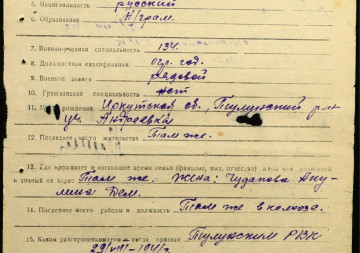 5. Национальность русский
6. Образование н/грам.
7. Военно-учетная специальность 134.
8. Должностная квалификация огр. год.
9. Военное звание рядовой
10. Гражданская специальность нет
11. рождения Иркутская об., Тулунский р-н
уч. Андреевка
12. Последнее место жительства Там же.
13. Где проживает в настоящее время семья (фамилия, имя, отчество)
и точный их адрес Там же. Жена: Чудапова Аку
лина Дем.
14. Последнее место работы и должность Там же в колхозе.
15. Каким райгорвоенкоматом и когда призван Тулунским РВК
29/VIII-1941 г.